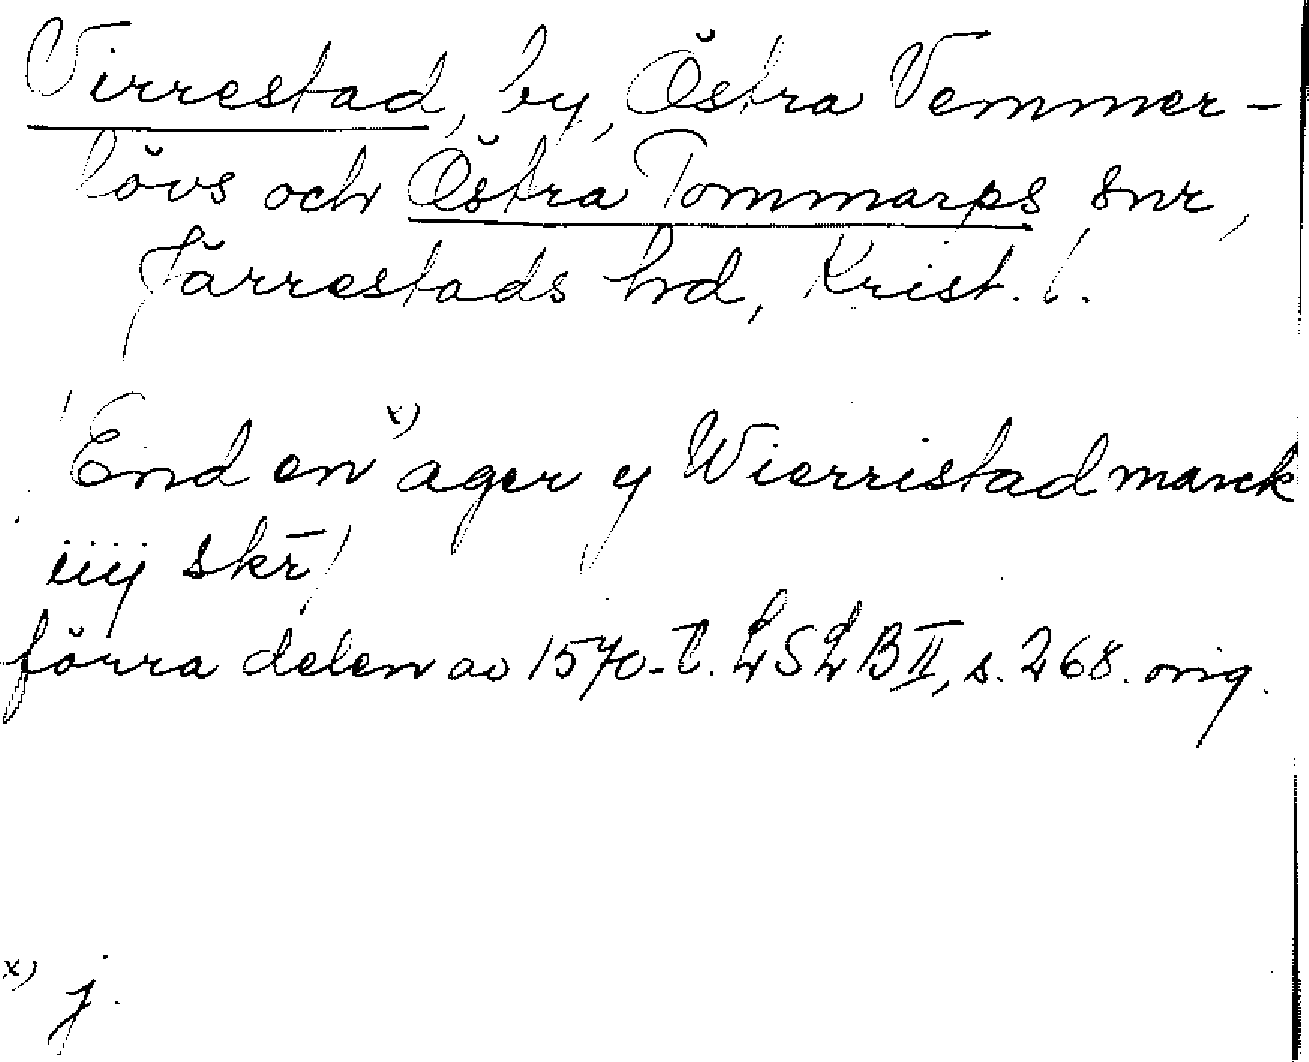 Virrestad, by, Östra Vemmer-
lövs och Östra Tommarps snr,
Järrestads hd, Krist. l.
x)
'End en ager y Wierristad marck
iiij skr̄'
förra delen av 1570-t. LSLB II, s. 268. orig.
x) j.